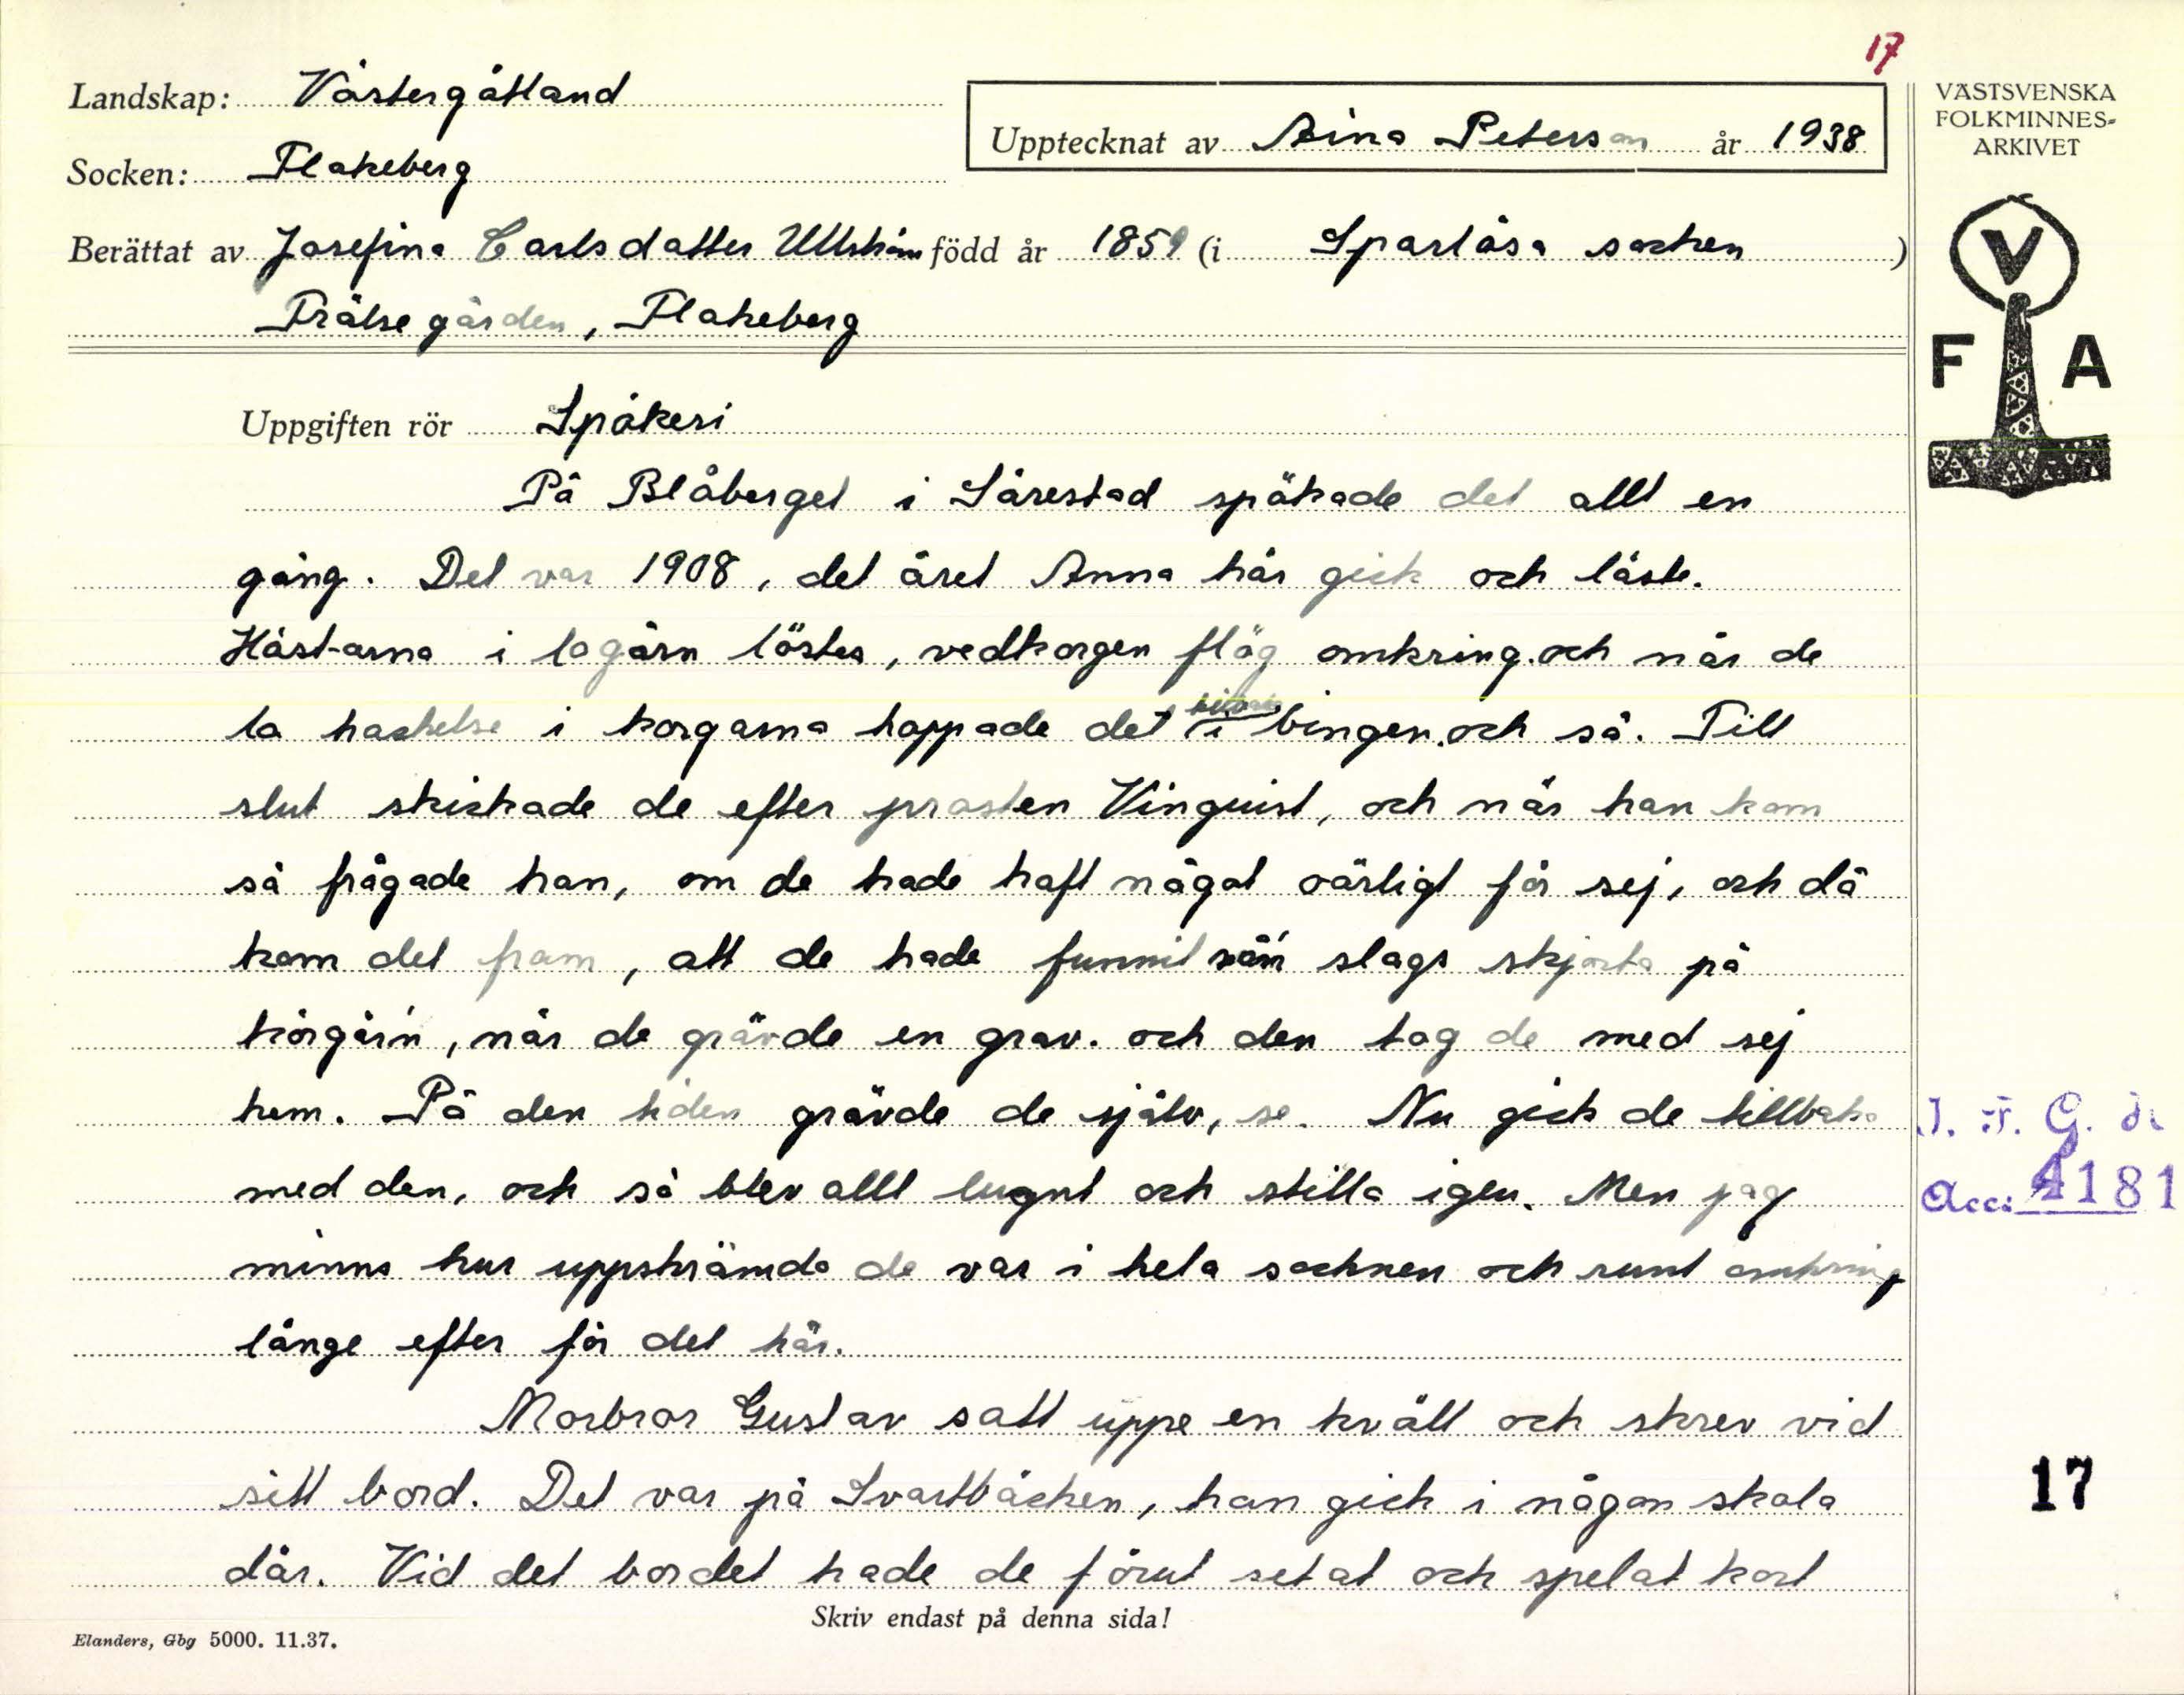 17
Landskap: Västergötland
Upptecknat av Aina Peterson år 1938
VÄSTSVENSKA
FOLKMINNES-
ARKIVET
Socken: Flakeberg
Berättat av Josefina Carlsdotter född år 1859 (i Sparlösa socken )
Frälsegården, Flakeberg
V
F A
Uppgiften rör Spökeri
På Blåberget i Särestad spökade det allt en
gång. Det var 1908, det året Anna här gick och läste.
Hästarna i lagårn löstes, vedkorgen flög omkring. och när de
la hackelse i korgarna hoppade det i bingen. och så. Till
slut skickade de efter prosten Vinquist, och när han kom
så frågade han, om de hade haft något oärligt för sej, och då
kom det fram, att de hade funnit slags skjorta på
körgårn, när de grävde en grav. och den tog de med sej
hem. På den tiden grävde de själv, se. Nu gick de tillbaka
med den, och så blev allt lugnt och stilla igen. Men jag
minns hur uppskrämda de var i hela socknen och runt omkring
länge efter för det här.
Morbror Gustav satt uppe en kväll och skrev vid
sitt bord. Det var på Svartbäcken, han gick i någon skola
där. Vid det bordet hade de förut setat och spelat kort
Skriv endast på denna sida!
Elanders, Gbg 5000. 11.37.
I. F. G.
Acc: 4181
17